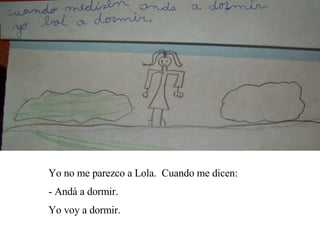 cuando medisen anda a dormir
yo boi a dormir.
Yo no me parezco a Lola.  Cuando me dicen:
- Andá a dormir.
Yo voy a dormir.